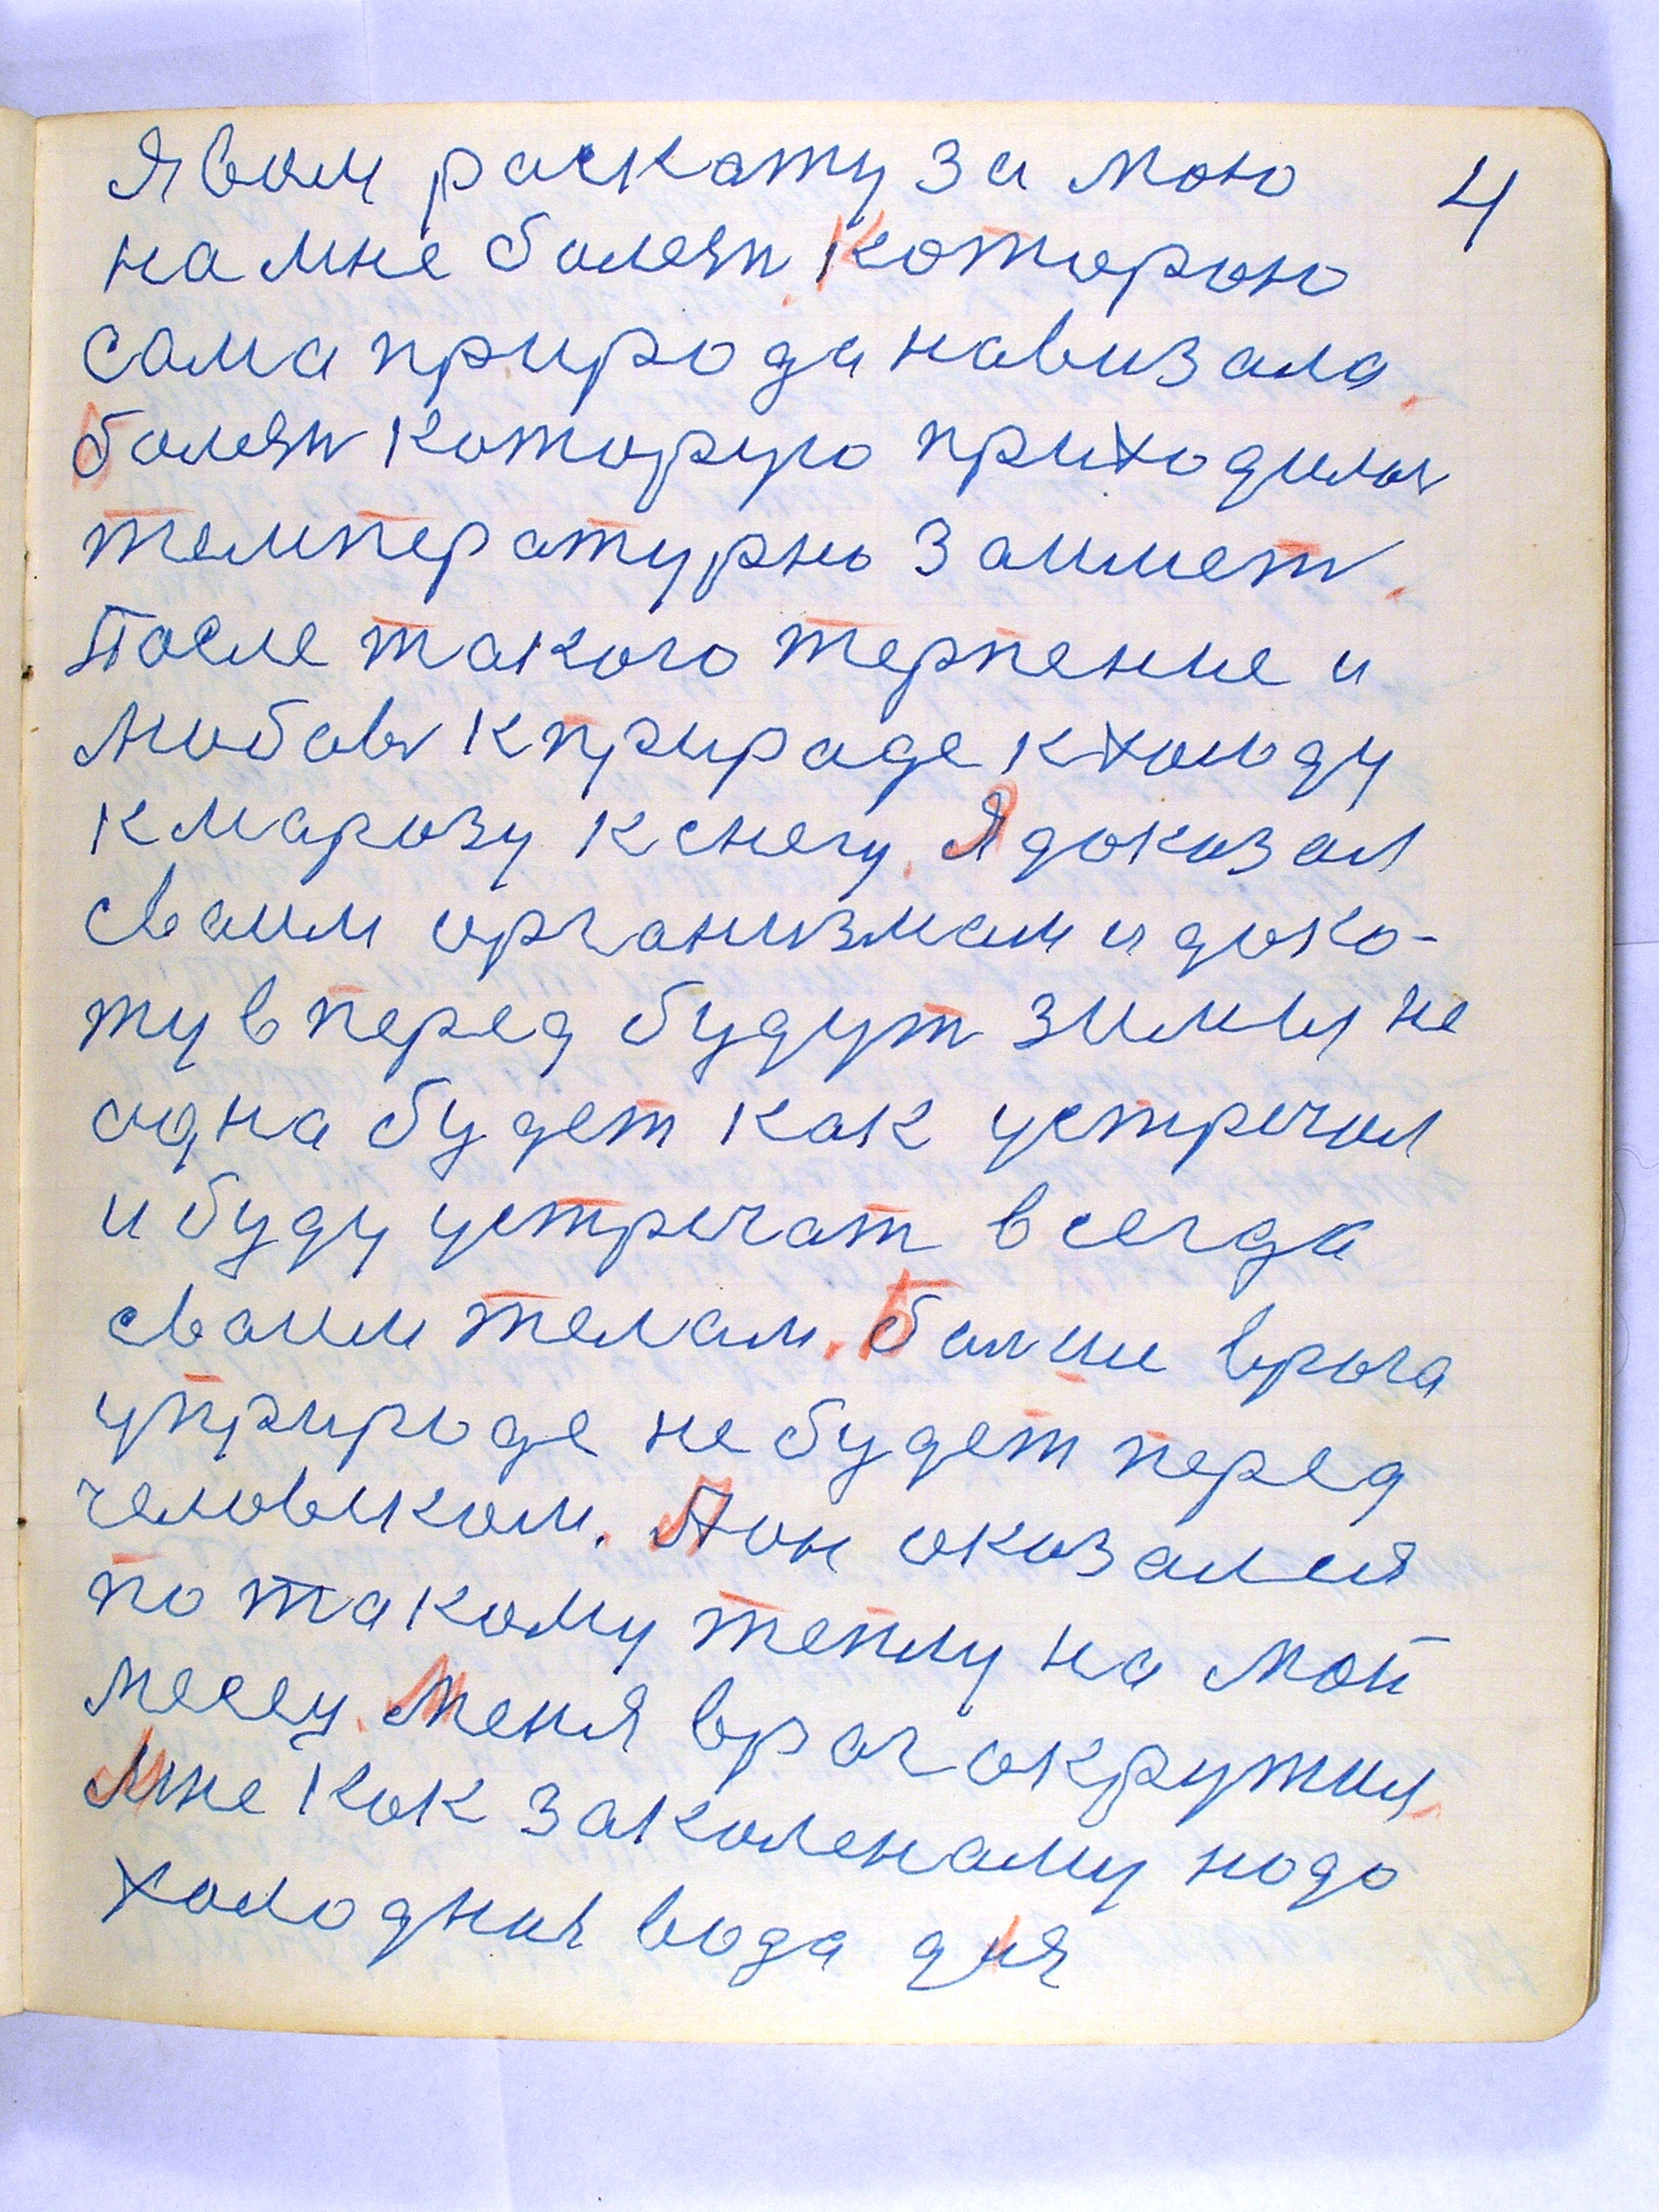 Я вам раскажу за мою 4
на мне болезн. Которою
сама природа навизала.
Болезн которую приходилось
температурнo займет.
После такого терпение и
любовь к природе к холоду
к марозу к снегу. Я доказал
сваим организмам и дока-
жу вперед будут зимы не
одна будет как устречал
и буду устречат всегда
сваим телам. Болши врага
у природе не будет перед
человеком. А он оказался
по такому теплу на мой
месец. Меня враг окружил.
Мне как закаленаму надо
холодная вода для